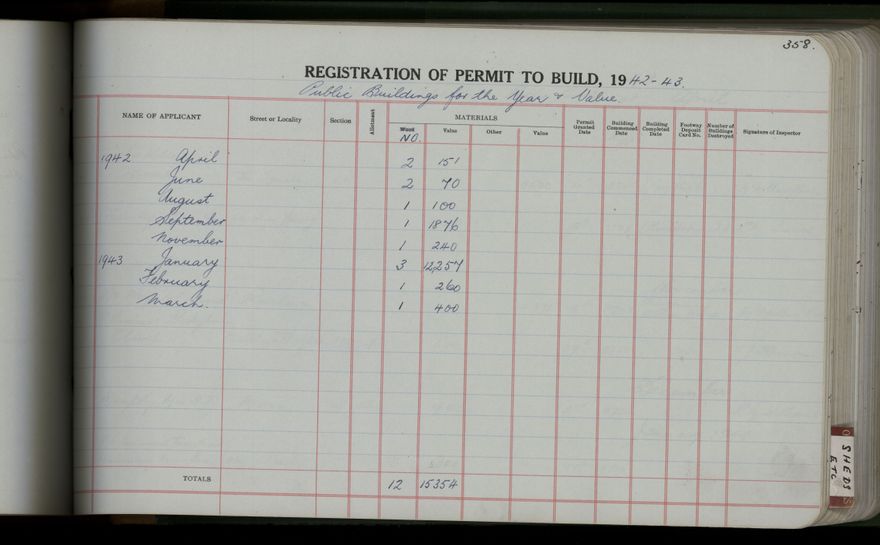 358.
REGISTRATION OF PERMIT TO BUILD, 1942-43.
Public Buildings for the Year & Value.
NAME OF APPLICANT Street or Locality Section Allotment MATERIALS Permit Granted Date Building Commenced Date Building Completed Date Footway Deposit Card No. Number of Buildings Destroyed Signature of Inspector
Wood Value Other Value
NO.
1942 April 2 151
June 2 70
August 1 100
September 1 1876
November 1 240
1943 January 3 12,257
February 1 260
March. 1 400
TOTALS 12 15354
SHEDS
ETC